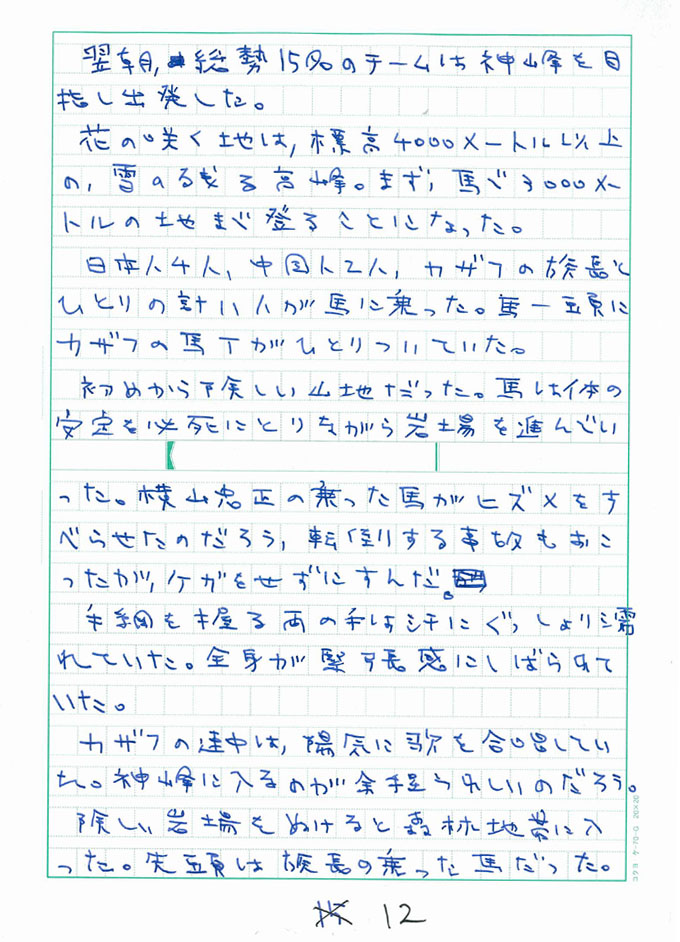 翌朝、総勢15名のチームは神峰を目
指し出発した。
花の咲く地は、標高4000メートル以上
の、雪のる残る高峰。まず、馬で3000メー
トルの土地まで登ることになった。
日本人4人、中国人2人、カザフの族長と
ひとりの計11人が馬に乗った。馬一頭に
カザフの馬丁がひとりついていた。
初めから険しい山地だった。馬は体の
安定を必死にとりながら岩土場を進んでい
った。横山忠正の乗った馬がヒズメをす
べらせたのだろう、転倒する事故もおこ
ったが、ケガをせずにすんだ。
手綱を握る両の手は汗にぐっしょり濡
れていた。全身が緊張感にしばられて
いた。
カザフの連中は、陽気に歌を合唱してい
た。神峰に入るのが余程うれしいのだろう。
険しい岩場をぬけると森林地帯に入
った。先頭は族長の乗った馬だった。
12